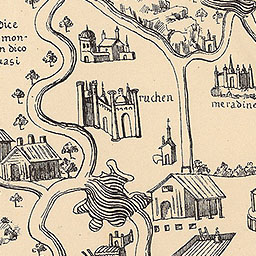 dice
mon-
n dico
uasi
ruchen
meradine